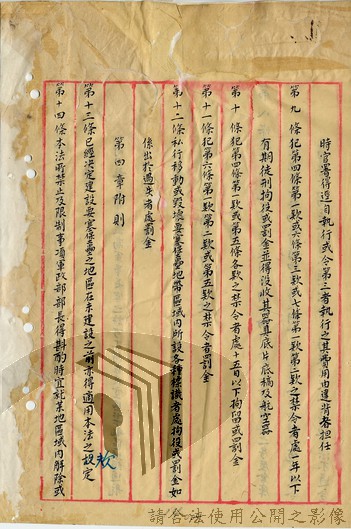 時官署得逕自執行或令第三者執行之其費用由違背者担任
第九條犯第四條第一款或六條第三款或七條第一款第三款之禁令者處一年以下
有期徒刑拘役或罰金並得沒收其器具底片底稿及航空器
第十條犯第四條第二款或第五條各款之禁令者處十五日以下拘留或罰金
第十一條犯第六條第一款第二款或第五款之禁令者罰金
第十二條私行移動或毀壞要塞堡壘地帶區域內所設各種標識者處拘役或罰金如
係出於過失者處罰金
第四章附則
第十三條已經決定建設要塞堡壘之地區在未建設之前亦得適用本法之規定
第十四條本法所禁止及限制事項軍政部部長得斟酌時宜就某地區域內解除或
請合法使用公開之影像